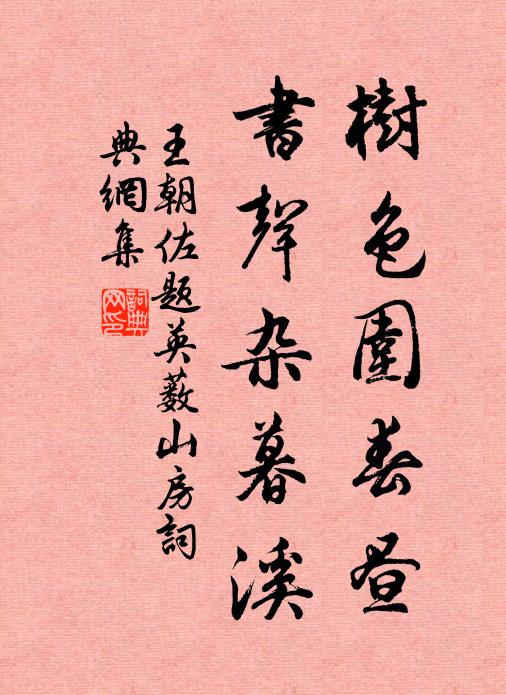 樹色圍春昼
書聲杂暮溪
王朝佐題英薮山房詞
典網集
詞典
网印